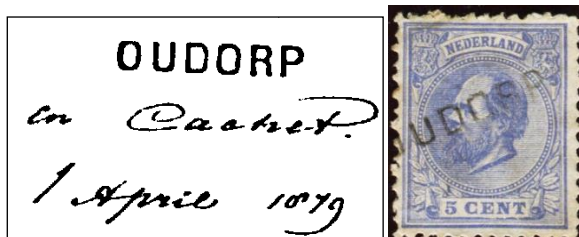 OUDORP
en Cachet.
1 April 1879
NEDERLAND
OUDORP
5 CENT